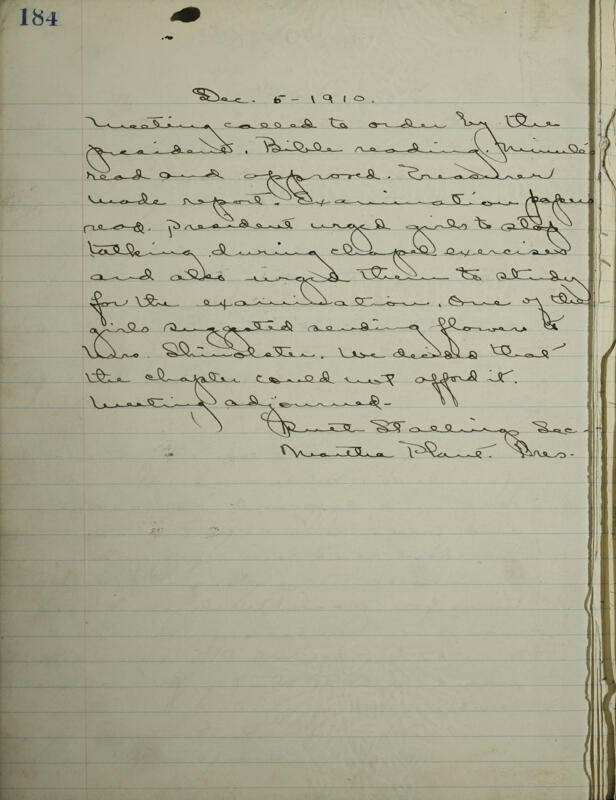 184
Dec. 5 - 1910.
Meeting called to order by the
president. Bible reading. Minutes
read and approved. Treasurer
made report. Examination papers
read. President urged girls to stop
talking during chapel exercises
and also urged them to study
for the examination. One of the
girls suggested sending flowers to
Mrs. We decided that
the chapter could not afford it.
Meeting adjourned-
Ruth Stallings Sec-
Martha Plant. Pres.